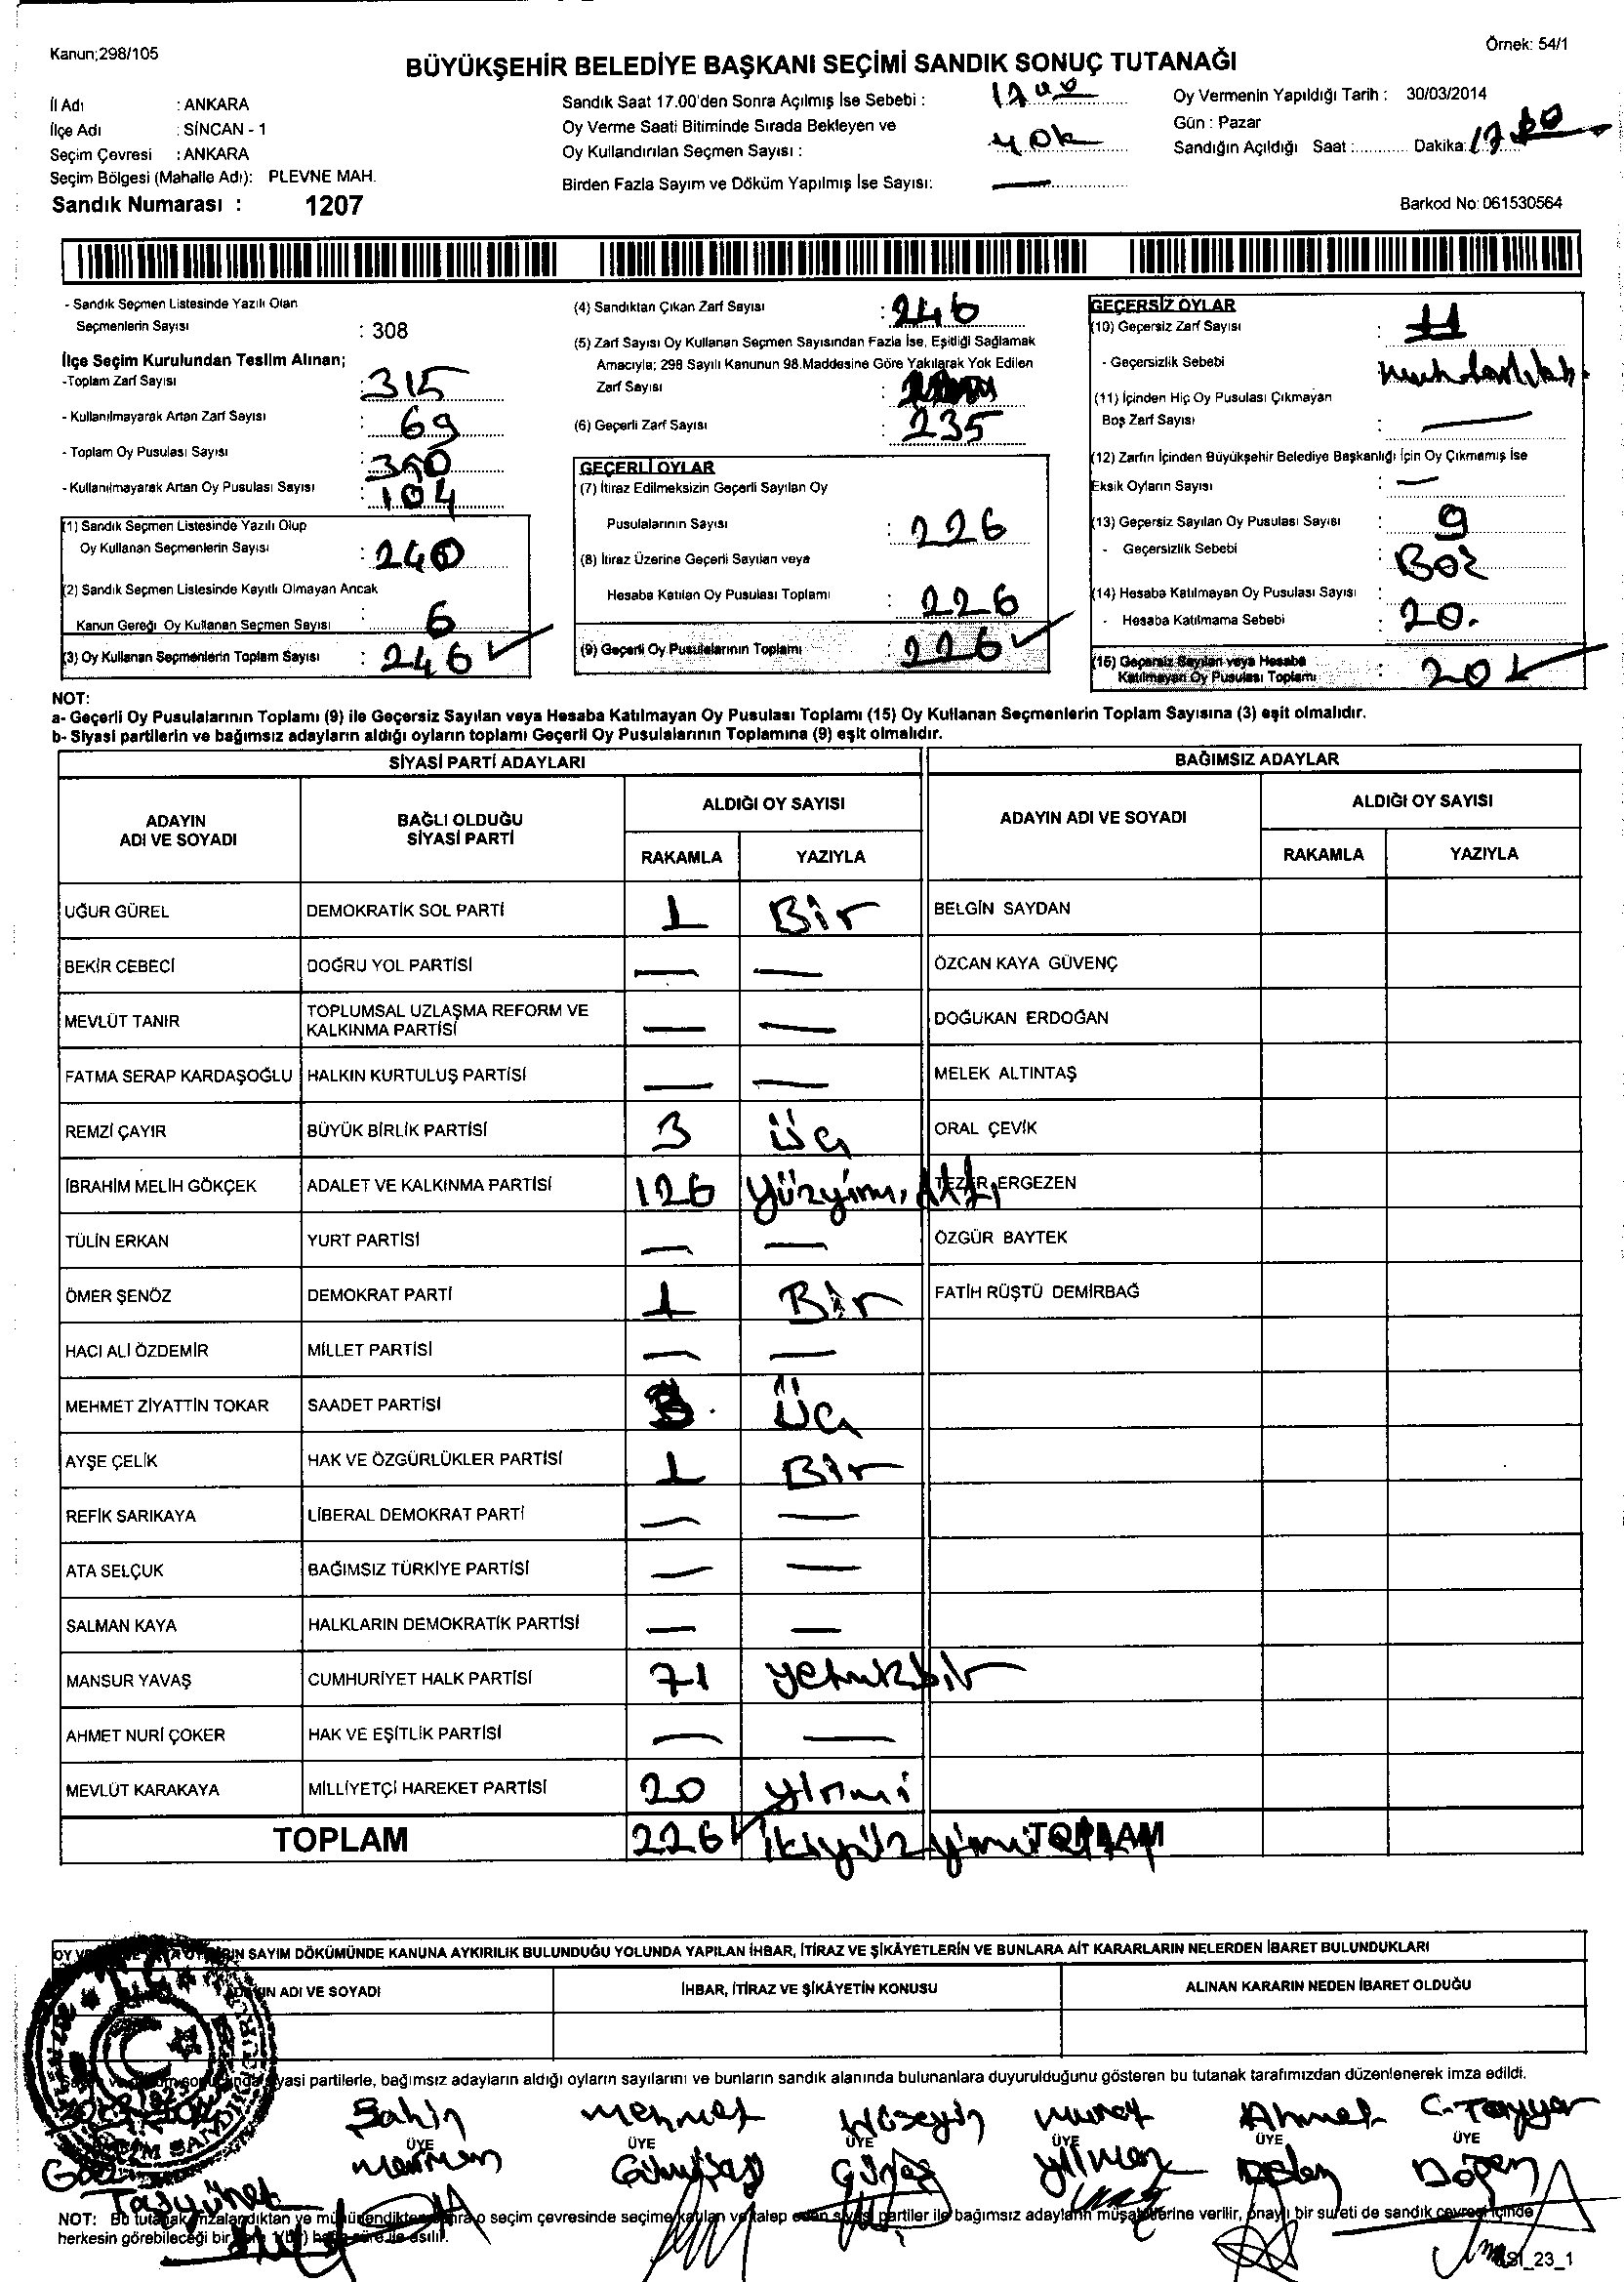 Kanun;298/105
Örnek: 54/1
BÜYÜKŞEHİR BELEDİYE BAŞKANI SEÇİMİ SANDIK SONUÇ TUTANAĞI
İl Adı : ANKARA
İlçe Adı : SİNCAN - 1
Seçim Çevresi : ANKARA
Seçim Bölgesi (Mahalle Adı): PLEVNE MAH.
Sandık Numarası : 1207
Sandık Saat 17.00'den Sonra Açılmış İse Sebebi :
Oy Verme Saati Bitiminde Sırada Bekleyen ve
Oy Kullandırılan Seçmen Sayısı : yok
Birden Fazla Sayım ve Döküm Yapılmış İse Sayısı: —
Oy Vermenin Yapıldığı Tarih : 30/03/2014
Gün : Pazar
Sandığın Açıldığı Saat :............ Dakika:
Barkod No: 061530564
- Sandık Seçmen Listesinde Yazılı Olan
Seçmenlerin Sayısı : 308
İlçe Seçim Kurulundan Teslim Alınan;
-Toplam Zarf Sayısı : 315
- Kullanılmayarak Artan Zarf Sayısı : 69
- Toplam Oy Pusulası Sayısı :
- Kullanılmayarak Artan Oy Pusulası Sayısı : 104
(1) Sandık Seçmen Listesinde Yazılı Olup
Oy Kullanan Seçmenlerin Sayısı : 240
(2) Sandık Seçmen Listesinde Kayıtlı Olmayan Ancak
Kanun Gereği Oy Kullanan Seçmen Sayısı : 6
(3) Oy Kullanan Seçmenlerin Toplam Sayısı : 246
(4) Sandıktan Çıkan Zarf Sayısı : 246
(5) Zarf Sayısı Oy Kullanan Seçmen Sayısından Fazla İse, Eşitliği Sağlamak
Amacıyla; 298 Sayılı Kanunun 98.Maddesine Göre Yakılarak Yok Edilen
Zarf Sayısı :
(6) Geçerli Zarf Sayısı : 235
GEÇERLİ OYLAR
(7) İtiraz Edilmeksizin Geçerli Sayılan Oy
Pusulalarının Sayısı : 226
(8) İtiraz Üzerine Geçerli Sayılan veya
Hesaba Katılan Oy Pusulası Toplamı : 226
(9) Geçerli Oy Pusulalarının Toplamı : 226
GEÇERSİZ OYLAR
(10) Geçersiz Zarf Sayısı : 11
- Geçersizlik Sebebi :
(11) İçinden Hiç Oy Pusulası Çıkmayan
Boş Zarf Sayısı : —
(12) Zarfın İçinden Büyükşehir Belediye Başkanlığı İçin Oy Çıkmamış İse
Eksik Oyların Sayısı : —
(13) Geçersiz Sayılan Oy Pusulası Sayısı : 9
- Geçersizlik Sebebi :
(14) Hesaba Katılmayan Oy Pusulası Sayısı : 20.
- Hesaba Katılmama Sebebi :
(15) Geçersiz Sayılan veya Hesaba
Katılmayan Oy Pusulası Toplamı : 20
NOT:
a- Geçerli Oy Pusulalarının Toplamı (9) ile Geçersiz Sayılan veya Hesaba Katılmayan Oy Pusulası Toplamı (15) Oy Kullanan Seçmenlerin Toplam Sayısına (3) eşit olmalıdır.
b- Siyasi partilerin ve bağımsız adayların aldığı oyların toplamı Geçerli Oy Pusulalarının Toplamına (9) eşit olmalıdır.
SİYASİ PARTİ ADAYLARI BAĞIMSIZ ADAYLAR
ADAYIN ADI VE SOYADI BAĞLI OLDUĞU SİYASİ PARTİ ALDIĞI OY SAYISI ADAYIN ADI VE SOYADI ALDIĞI OY SAYISI
RAKAMLA YAZIYLA RAKAMLA YAZIYLA
UĞUR GÜREL DEMOKRATİK SOL PARTİ 1 Bir BELGİN SAYDAN
BEKİR CEBECİ DOĞRU YOL PARTİSİ — — ÖZCAN KAYA GÜVENÇ
MEVLÜT TANIR TOPLUMSAL UZLAŞMA REFORM VE KALKINMA PARTİSİ — — DOĞUKAN ERDOĞAN
FATMA SERAP KARDAŞOĞLU HALKIN KURTULUŞ PARTİSİ — — MELEK ALTINTAŞ
REMZİ ÇAYIR BÜYÜK BİRLİK PARTİSİ 3 Üç ORAL ÇEVİK
İBRAHİM MELİH GÖKÇEK ADALET VE KALKINMA PARTİSİ 126 Yüzyirmi Altı TEZER ERGEZEN
TÜLİN ERKAN YURT PARTİSİ — — ÖZGÜR BAYTEK
ÖMER ŞENÖZ DEMOKRAT PARTİ 1 Bir FATİH RÜŞTÜ DEMİRBAĞ
HACI ALİ ÖZDEMİR MİLLET PARTİSİ — —
MEHMET ZİYATTİN TOKAR SAADET PARTİSİ 3 Üç
AYŞE ÇELİK HAK VE ÖZGÜRLÜKLER PARTİSİ 1 Bir
REFİK SARIKAYA LİBERAL DEMOKRAT PARTİ — —
ATA SELÇUK BAĞIMSIZ TÜRKİYE PARTİSİ — —
SALMAN KAYA HALKLARIN DEMOKRATİK PARTİSİ — —
MANSUR YAVAŞ CUMHURİYET HALK PARTİSİ 71 yetmişbir
AHMET NURİ ÇOKER HAK VE EŞİTLİK PARTİSİ — —
MEVLÜT KARAKAYA MİLLİYETÇİ HAREKET PARTİSİ 20 yirmi
TOPLAM 226 ikiyüz yirmi TOPLAM
SAYIM DÖKÜMÜNDE KANUNA AYKIRILIK BULUNDUĞU YOLUNDA YAPILAN İHBAR, İTİRAZ VE ŞİKÂYETLERİN VE BUNLARA AİT KARARLARIN NELERDEN İBARET BULUNDUKLARI
ADI VE SOYADI İHBAR, İTİRAZ VE ŞİKÂYETİN KONUSU ALINAN KARARIN NEDEN İBARET OLDUĞU
siyasi partilerle, bağımsız adayların aldığı oyların sayılarını ve bunların sandık alanında bulunanlara duyurulduğunu gösteren bu tutanak tarafımızdan düzenlenerek imza edildi.
Şahin Mehmet Hüseyin Murat Ahmet C. Tayyar
ÜYE ÜYE ÜYE ÜYE ÜYE ÜYE
Gümüşay Güneş Yılmaz Doğan
Taşyürek
NOT: Bu tutanak imzalandıktan ve mühürlendikten sonra o seçim çevresinde seçime katılan ve talep eden siyasi partiler ile bağımsız adayların müşahitlerine verilir, onaylı bir sureti de sandık çevresi içinde
herkesin görebileceği bir yere 1 (bir) hafta süre ile asılır.
SI_23_1